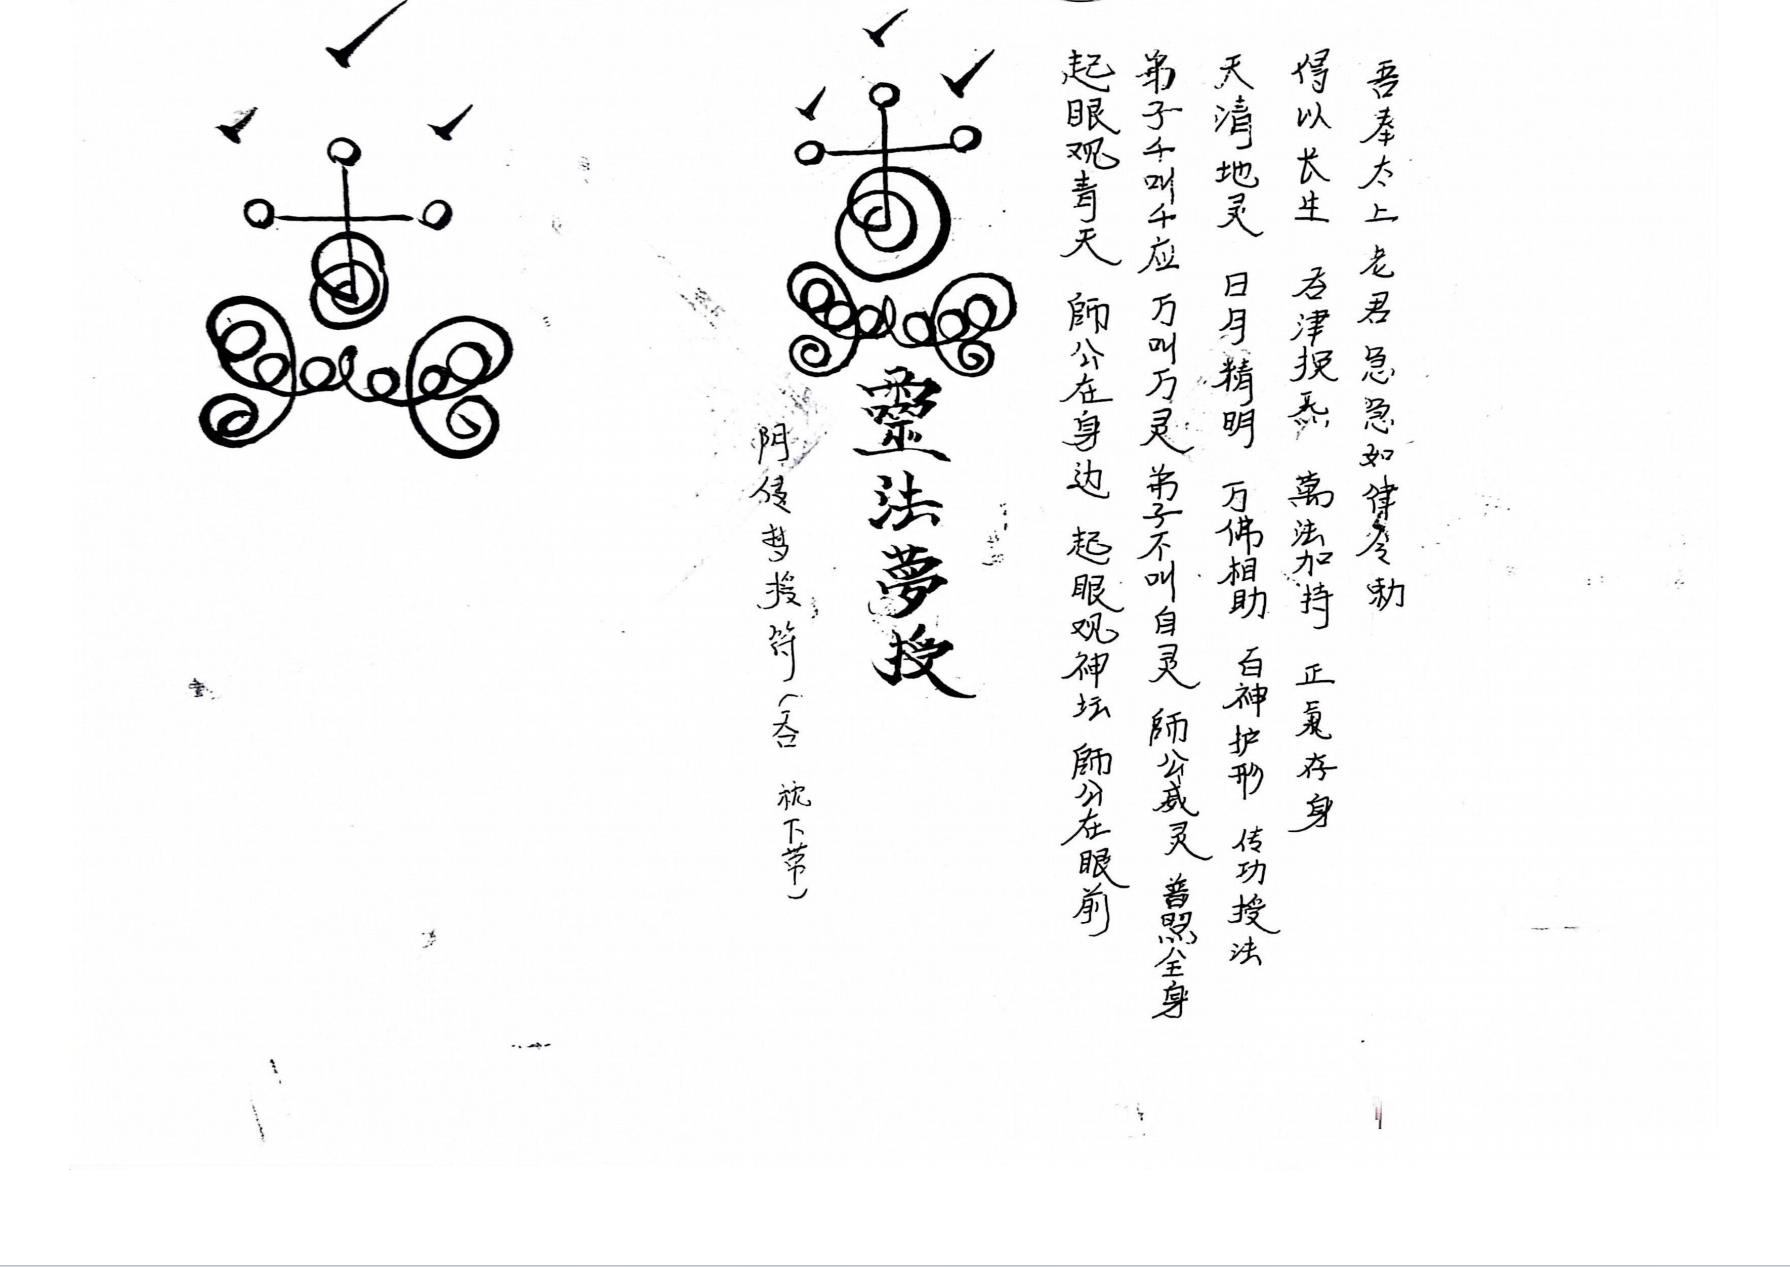 阴传梦授符(吞 枕下带)
靈法夢授
起眼观青天 師公在身边 起眼观神坛 師公在眼前
弟子千叫千应 万叫万灵 弟子不叫自灵 師公威灵 普照全身
天清地灵 日月精明 万佛相助 百神护形 传功授法
得以长生 吞津换炁 萬法加持 正氣存身
吾奉太上老君急急如律令勅